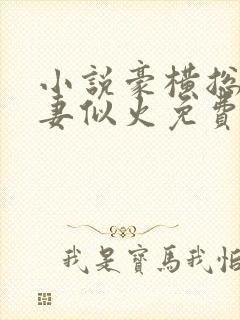 小說豪橫總
妻似火免費
我是寶馬我怕